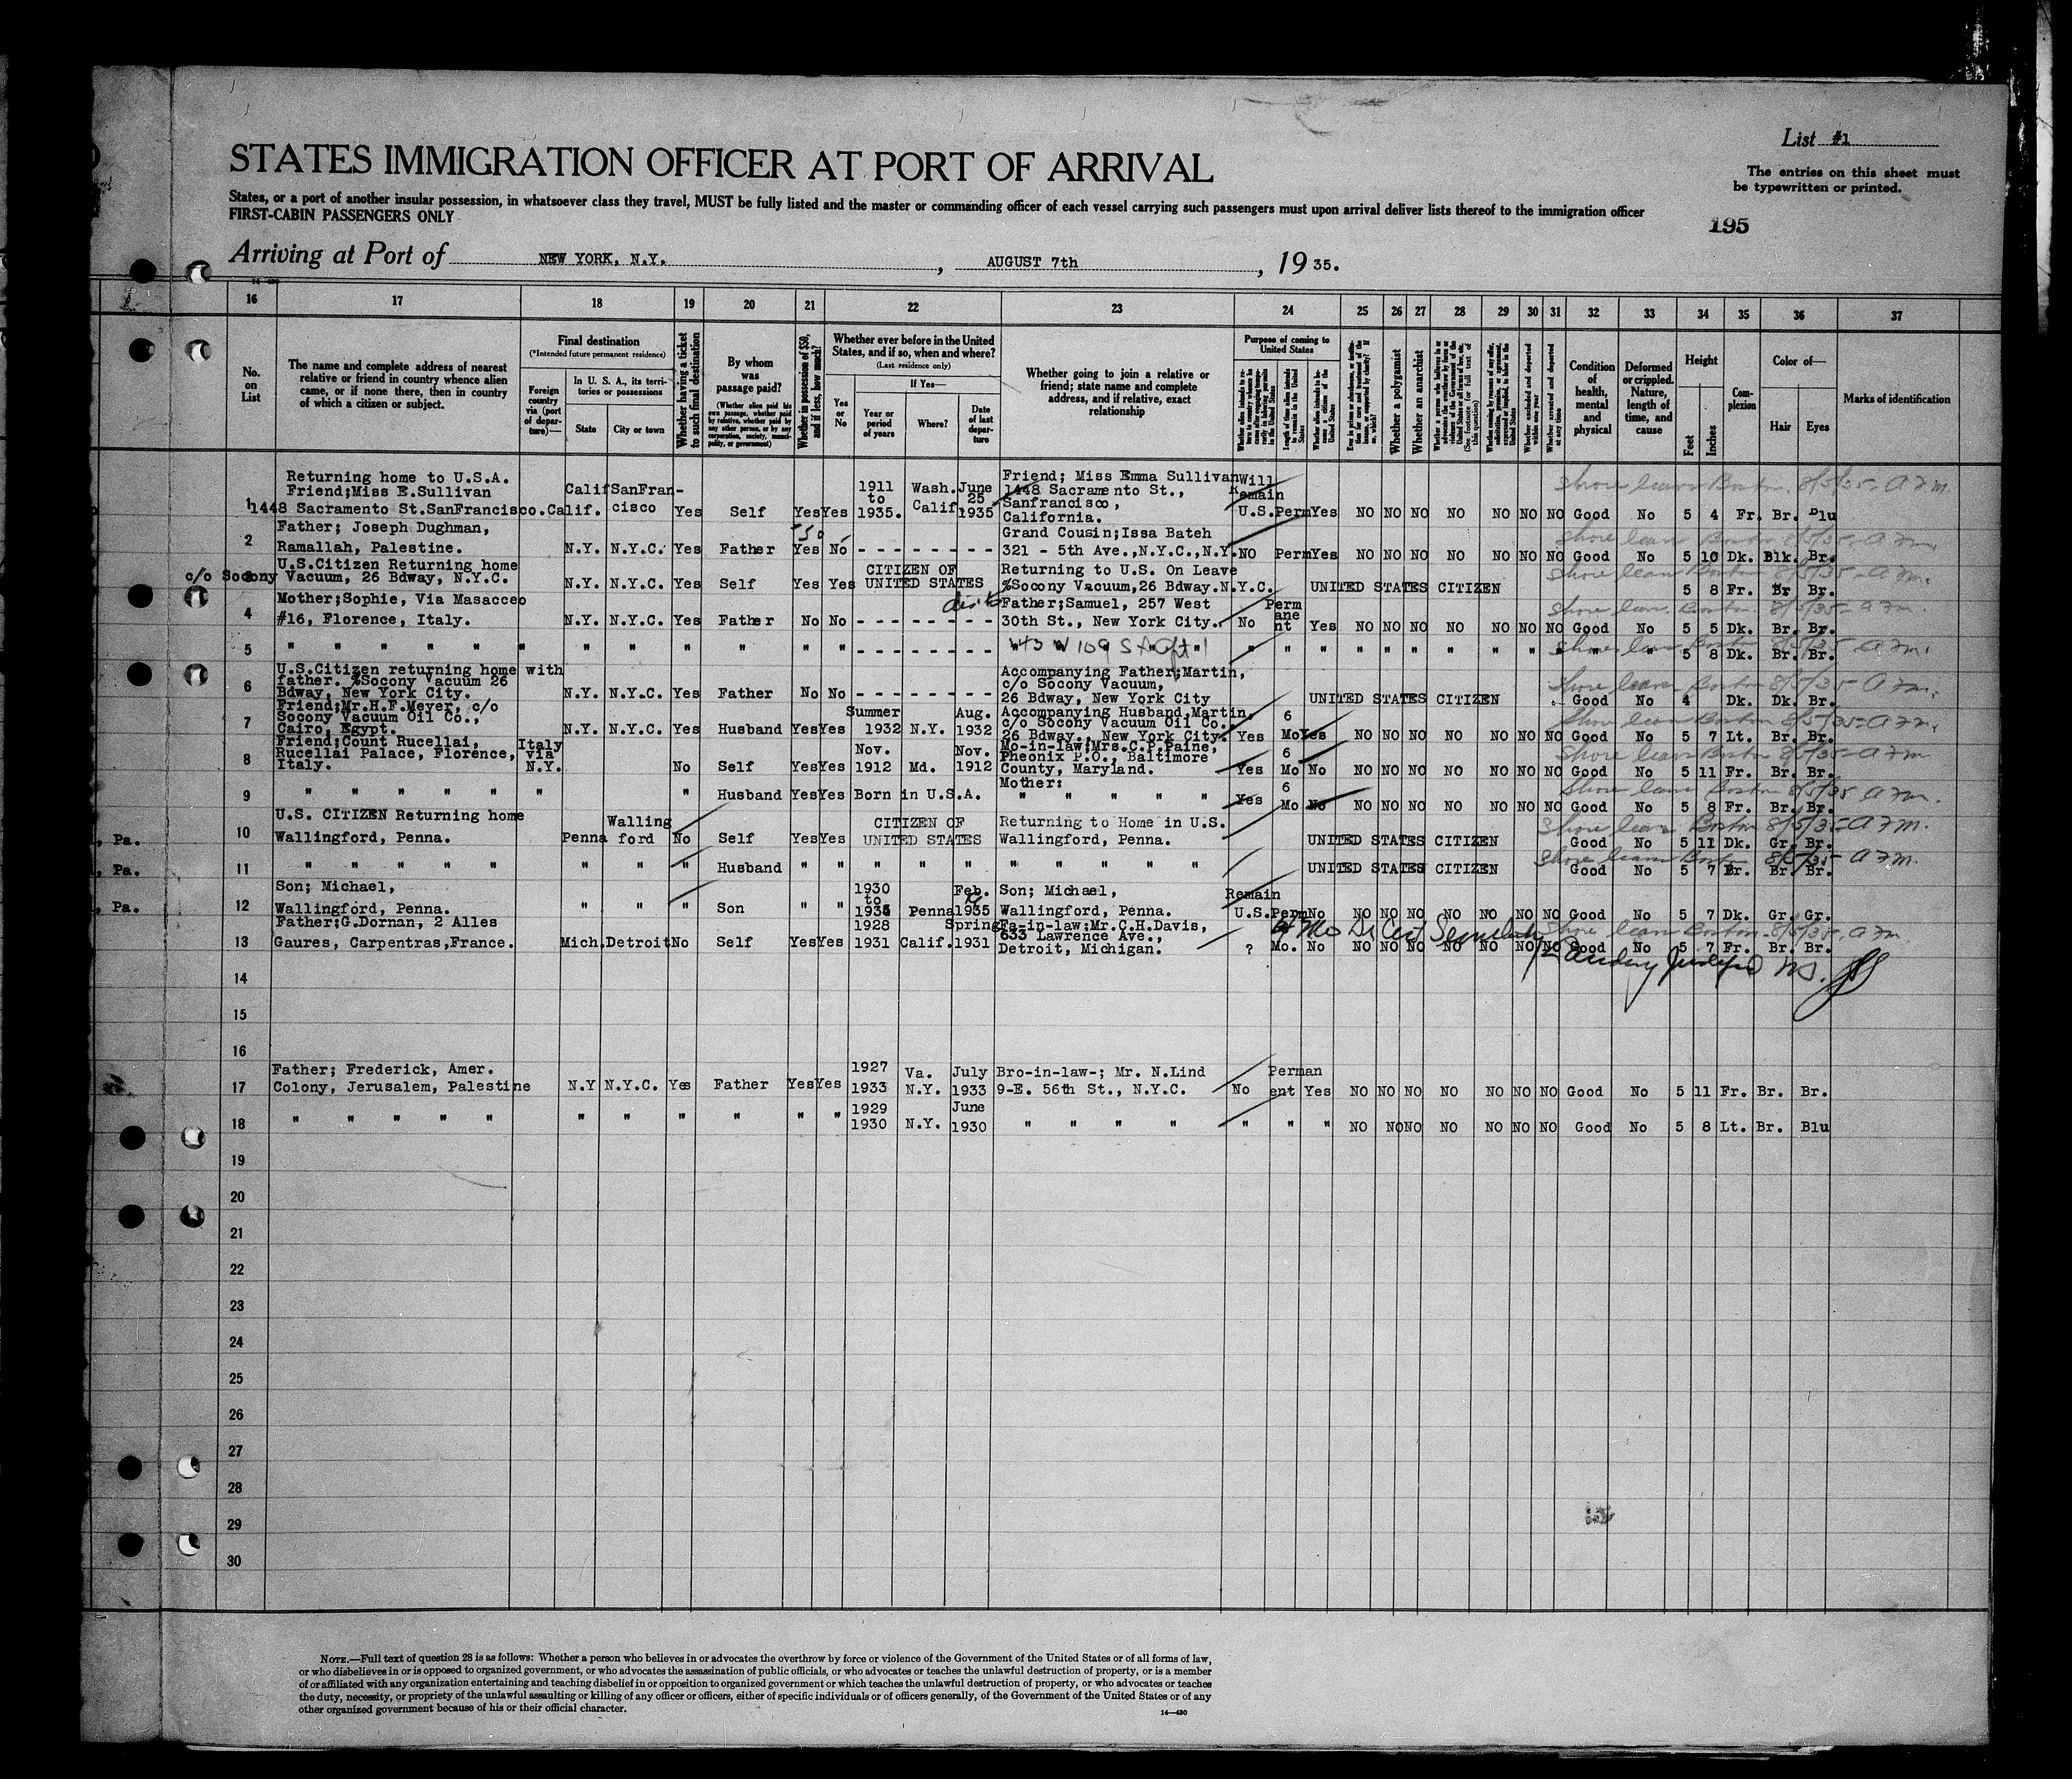 List #1
STATES IMMIGRATION OFFICER AT PORT OF ARRIVAL
The entries on this sheet must
be typewritten or printed.
States, or a port of another insular possession, in whatsoever class they travel, MUST be fully listed and the master or commanding officer of each vessel carrying such passengers must upon arrival deliver lists thereof to the immigration officer
FIRST-CABIN PASSENGERS ONLY
195
Arriving at Port of NEW YORK, N.Y. , AUGUST 7th , 19 35.
16 17 18 19 20 21 22 23 24 25 26 27 28 29 30 31 32 33 34 35 36 37
No. on List
The name and complete address of nearest
relative or friend in country whence alien
came, or if none there, then in country
of which a citizen or subject.
Final destination
(*Intended future permanent residence)
Foreign country via (port of departure)—
In U. S. A., its territories or possessions
State City or town
Whether having a ticket to such final destination
By whom was passage paid?
(Whether alien paid his own passage, whether paid by relative, whether paid by any other person, or by any corporation, society, municipality, or government)
Whether in possession of $50, and if less, how much?
Whether ever before in the United
States, and if so, when and where?
(Last residence only)
Yes or No
If Yes—
Year or period of years Where? Date of last departure
Whether going to join a relative or
friend; state name and complete
address, and if relative, exact
relationship
Purpose of coming to United States
Length of time alien intends to remain in the United States
Whether a polygamist
Whether an anarchist
(See footnote for full text of this question)
Whether arrested and deported at any time
Condition of health, mental and physical
Deformed or crippled. Nature, length of time, and cause
Height
Feet Inches
Complexion
Color of—
Hair Eyes
Marks of identification
1 Returning home to U.S.A. Friend;Miss E.Sullivan 1448 Sacramento St.SanFrancisco.Calif. Calif SanFrancisco Yes Self Yes Yes 1911 to 1935. Wash. Calif. June 25 1935 Friend; Miss Emma Sullivan 1448 Sacramento St., Sanfrancisco, California. Will Remain U.S. Perm Yes NO NO NO NO NO NO NO Good No 5 4 Fr. Br. Blu
shore leave Boston 8/5/35-
2 Father; Joseph Dughman, Ramallah, Palestine. N.Y. N.Y.C. Yes Father Yes 50 No - - - - - - - - Grand Cousin;Issa Bateh 321 - 5th Ave.,N.Y.C.,N.Y. NO Perm Yes NO NO NO NO NO NO NO Good No 5 10 Dk. Blk. Br.
shore leave Boston 8/5/35-
3 U.S.Citizen Returning home c/o Socony Vacuum, 26 Bdway, N.Y.C. N.Y. N.Y.C. Yes Self Yes Yes CITIZEN OF UNITED STATES Returning to U.S. On Leave %Socony Vacuum,26 Bdway.N.Y.C. UNITED STATES CITIZEN 5 8 Fr. Br Br.
shore leave Boston 8/5/35-
4 Mother;Sophie, Via Masacceo #16, Florence, Italy. N.Y. N.Y.C. Yes Father No No - - - - - - - - Father;Samuel, 257 West 30th St., New York City. No Permanent Yes NO NO NO NO NO NO NO Good No 5 5 Dk. Br. Br.
shore leave Boston 8/5/35-
5 " " " " " " " " " " " " - - - - - - - - 443 W 109 St Apt 1 " " " " " " " " " " " " " 5 8 Dk. Br. Br.
shore leave Boston 8/5/35-
6 U.S.Citizen returning home with father. %Socony Vacuum 26 Bdway, New York City. N.Y. N.Y.C. Yes Father No No - - - - - - - - Accompanying Father;Martin, c/o Socony Vacuum, 26 Bdway, New York City UNITED STATES CITIZEN Good No 4 Dk. Dk. Br.
shore leave Boston 8/5/35-
7 Friend;Mr.H.F.Meyer, c/o Socony Vacuum Oil Co., Cairo, Egypt. N.Y. N.Y.C. Yes Husband Yes Yes Summer 1932 N.Y. Aug. 1932 Accompanying Husband,Martin, c/o Socony Vacuum Oil Co. 26 Bdway., New York City. Yes 6 Mo Yes NO NO NO NO NO NO NO Good No 5 7 Lt. Br. Br.
shore leave Boston 8/5/35-
8 Friend;Count Rucellai, Rucellai Palace, Florence, Italy. Italy via N.Y. No Self Yes Yes Nov. 1912 Md. Nov. 1912 Mo-in-law;Mrs.C.P.Paine, Pheonix P.O., Baltimore County, Maryland. Yes 6 Mo No NO NO NO NO NO NO NO Good No 5 11 Fr. Br. Br.
shore leave Boston 8/5/35
9 " " " " " " " Husband Yes Yes Born in U.S.A. Mother: " " " " " Yes 6 Mo No NO NO NO NO NO NO NO Good No 5 8 Fr. Br. Br.
shore leave Boston 8/5/35
, Pa. 10 U.S. CITIZEN Returning home Wallingford, Penna. Penna Walling ford No Self Yes Yes CITIZEN OF UNITED STATES Returning to Home in U.S. Wallingford, Penna. UNITED STATES CITIZEN Good No 5 11 Dk. Gr. Br.
shore leave Boston 8/5/35-
, Pa. 11 " " " " " " " " Husband " " " " " " " " " " " UNITED STATES CITIZEN Good No 5 7 Br. Br.
, Pa. 12 Son; Michael, Wallingford, Penna. " " " Son " " 1930 to 1935 Penna Feb. 1935 Son; Michael, Wallingford, Penna. Remain U.S. Perm No NO NO NO NO NO NO NO Good No 5 7 Dk. Gr. Gr.
13 Father;G.Dornan, 2 Alles Gaures, Carpentras,France. Mich. Detroit No Self Yes Yes 1928 1931 Calif. Spring 1931 Fa-in-law;Mr.C.H.Davis, 633 Lawrence Ave., Detroit, Michigan. ? Mo. No NO NO NO NO NO NO NO Good No 5 7 Fr. Br. Br.
shore leave Boston 8/5/35
14
15
16
17 Father; Frederick, Amer. Colony, Jerusalem, Palestine N.Y N.Y.C. Yes Father Yes Yes 1927 1933 Va. N.Y. July 1933 Bro-in-law-; Mr. N.Lind 9-E. 56th St., N.Y.C. No Permanent Yes NO NO NO NO NO NO NO Good No 5 11 Fr. Br. Br.
18 " " " " " " " " " " " 1929 1930 N.Y. June 1930 " " " " " " " NO NO NO NO NO NO NO Good No 5 8 Lt. Br. Blu
19
20
21
22
23
24
25
26
27
28
29
30
NOTE.—Full text of question 28 is as follows: Whether a person who believes in or advocates the overthrow by force or violence of the Government of the United States or of all forms of law,
or who disbelieves in or is opposed to organized government, or who advocates the assassination of public officials, or who advocates or teaches the unlawful destruction of property, or is a member
of or affiliated with any organization entertaining and teaching disbelief in or opposition to organized government or which teaches the unlawful destruction of property, or who advocates or teaches
the duty, necessity, or propriety of the unlawful assaulting or killing of any officer or officers, either of specific individuals or of officers generally, of the Government of the United States or of any
other organized government because of his or their official character.
14—430